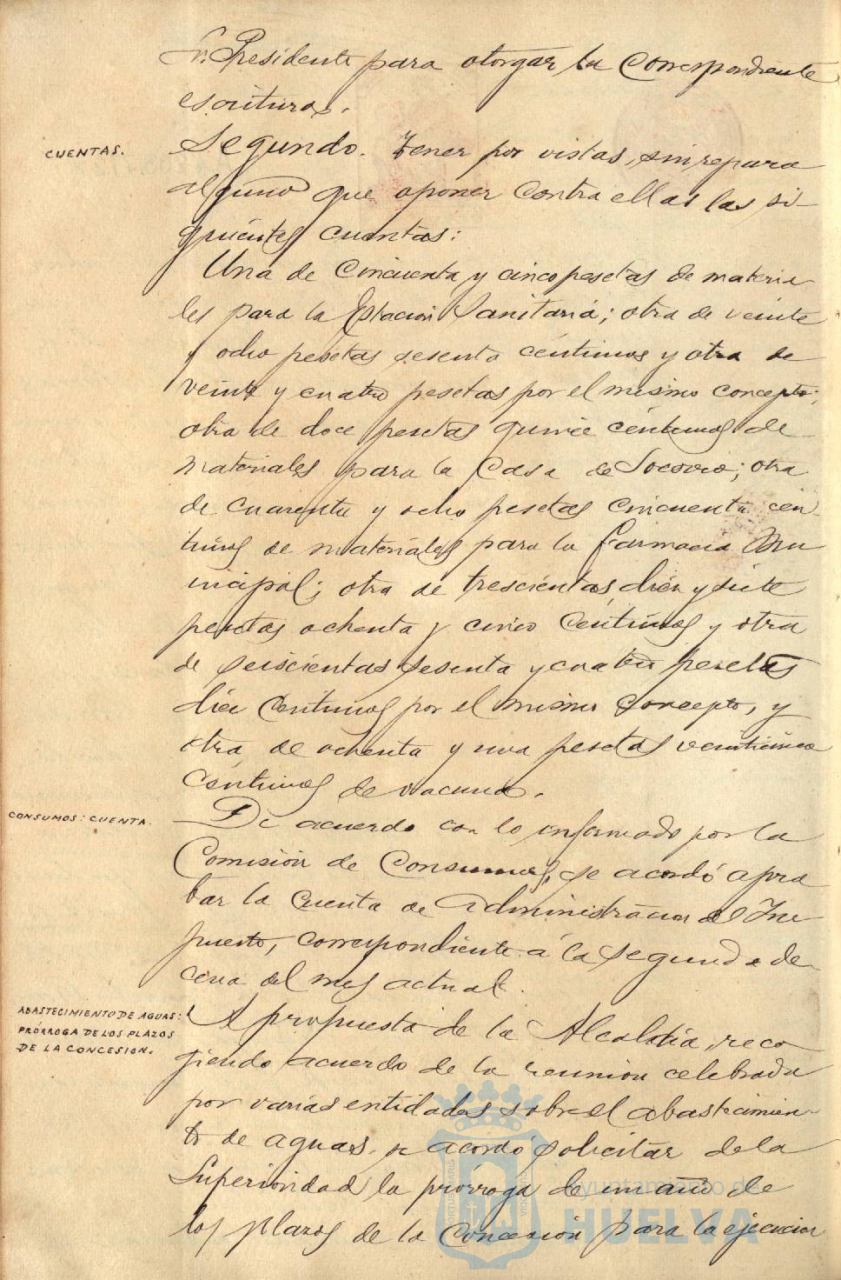 Sr. Presidente para otorgar la correspondiente
escritura.
CUENTAS.
Segundo. Tener por vistas, sin reparo
alguno que oponer contra ellas las si-
guientes cuentas:
Una de cincuenta y cinco pesetas de materia-
les para la Estación Sanitaria; otra de veinte
y ocho pesetas sesenta céntimos y otra de
veinte y cuatro pesetas por el mismo concepto;
otra de doce pesetas quince céntimos de
materiales para la Casa de Socorro; otra
de cuarenta y ocho pesetas cincuenta cén
timos de materiales para la farmacia Mu
nicipal; otra de trescientas diez y siete
pesetas ochenta y cinco céntimos y otra
de seiscientas sesenta y cuatro pesetas
diez céntimos por el mismo concepto, y
otra de ochenta y una pesetas veinticinco
céntimos de vacuna.
CONSUMOS: CUENTA.
De acuerdo con lo informado por la
Comisión de Consumos, se acordó apro
bar la cuenta de Administracion del Im
puesto, correspondiente á la segunda de-
cena del mes actual.
ABASTECIMIENTO DE AGUAS:
PRÓRROGA DE LOS PLAZOS
DE LA CONCESION.
A propuesta de la Alcaldía, reco
giendo acuerdo de la reunión celebrada
por varias entidades sobre el abastecimien-
to de aguas, se acordó solicitar de la
Superioridad la prórroga de un año de
los plazos de la concesión para la ejecucion
Ayuntamiento de
HUELVA